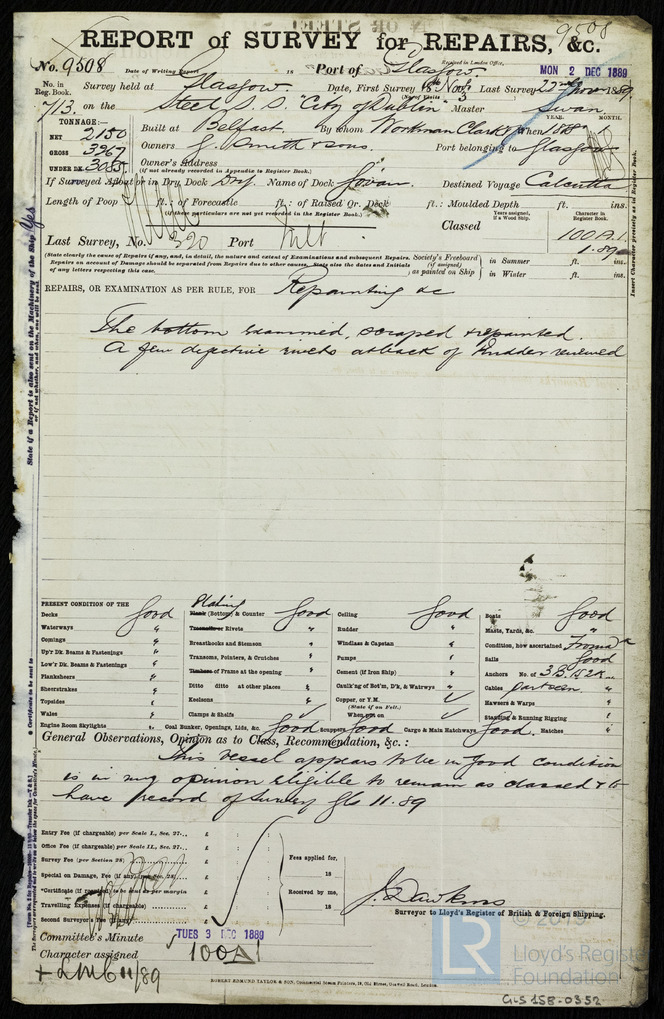 9508
REPORT of SURVEY for REPAIRS, &c.
No. 9508 Date of Writing Report 18 Port of Glasgow Received in London Office, MON 2 DEC 1889
No. in Reg. Book. Survey held at Glasgow Date, First Survey 8th Novr Last Survey 22nd Novr 1889
(No. of Visits 3)
713. on the Steel S. S. "City of Dublin" Master Swan
TONNAGE:— YEAR. MONTH.
NET 2150 Built at Belfast. By whom Workman Clark & Co When 1888
GROSS 3267 Owners G. Smith & Sons. Port belonging to Glasgow
UNDER DK. 3085 Owners' Address
(if not already recorded in Appendix to Register Book.)
If Surveyed Afloat or in Dry Dock Dry. Name of Dock Govan. Destined Voyage Calcutta
Length of Poop ft.: of Forecastle ft.: of Raised Qr. Deck ft.: Moulded Depth ft. ins.
(if these particulars are not yet recorded in the Register Book.)
Years assigned, if a Wood Ship. Character in Register Book.
Last Survey, No. 320 Port Classed 100A.1.
1.89
(State clearly the cause of Repairs if any, and, in detail, the nature and extent of Examinations and subsequent Repairs.
Repairs on account of Damage should be separated from Repairs due to other causes. State also the dates and Initials
of any letters respecting this case.)
Society's Freeboard (if assigned) as painted on Ship
in Summer ft. ins.
in Winter ft. ins.
REPAIRS, OR EXAMINATION AS PER RULE, FOR Repainting &c
The bottom examined, scraped & repainted.
A few defective rivets at back of Rudder renewed
State if a Report is also sent on the Machinery of the Ship Yes
or if not whether, and when, one will be sent.
Insert Character precisely as in Register Book.
Certificate to be sent to
PRESENT CONDITION OF THE
Decks Good
Waterways "
Comings "
Up'r Dk. Beams & Fastenings "
Low'r Dk. Beams & Fastenings "
Planksheers "
Sheerstrakes "
Topsides "
Wales "
Engine Room Skylights "
Plating
Plank (Bottom) & Counter Good
Treenails or Rivets "
Breasthooks and Stemson "
Transoms, Pointers, & Crutches "
Timbers of Frame at the opening "
Ditto ditto at other places "
Keelsons "
Clamps & Shelfs
Coal Bunker, Openings, Lids, &c. Good
Ceiling Good
Rudder "
Windlass & Capstan "
Pumps "
Cement (if Iron Ship) "
Caulk'g of Bot'm, D'k, & Watrwys "
Copper, or Y.M.
(State if on Felt.)
When put on
Scuppers Good Cargo & Main Hatchways Good
Boats Good
Masts, Yards, &c. "
Condition, how ascertained From dk
Sails Good
Anchors No. of 3B. 1S. 2K.
Cables part seen.
Hawsers & Warps "
Standing & Running Rigging "
Hatches "
General Observations, Opinion as to Class, Recommendation, &c.:
This vessel appears to be in good condition
is in my opinion eligible to remain as classed & to
have record of Survey Gls 11.89
Entry Fee (if chargeable) per Scale I., Sec. 27... £ : :
Office Fee (if chargeable) per Scale II., Sec. 27... £ : :
Survey Fee (per Section 28) £ : :
Special on Damage, Fee (if any) £ : :
*Certificate (if required) to be sent as per margin
Travelling Expenses (if chargeable) £ : :
Second Surveyor's Fee (if any) £ : :
Fees applied for,
18
Received by me,
18
J. Dawkins
Surveyor to Lloyd's Register of British & Foreign Shipping.
Committee's Minute TUES 3 DEC 1889
Character assigned 100A1
+ LMC 11/89
ROBERT EDMUND TAYLOR & SON, Commercial Steam Printers, 19, Old Street, Goswell Road, London.
LR
© 2019
Lloyd's Register
Foundation
GLS 158-0352